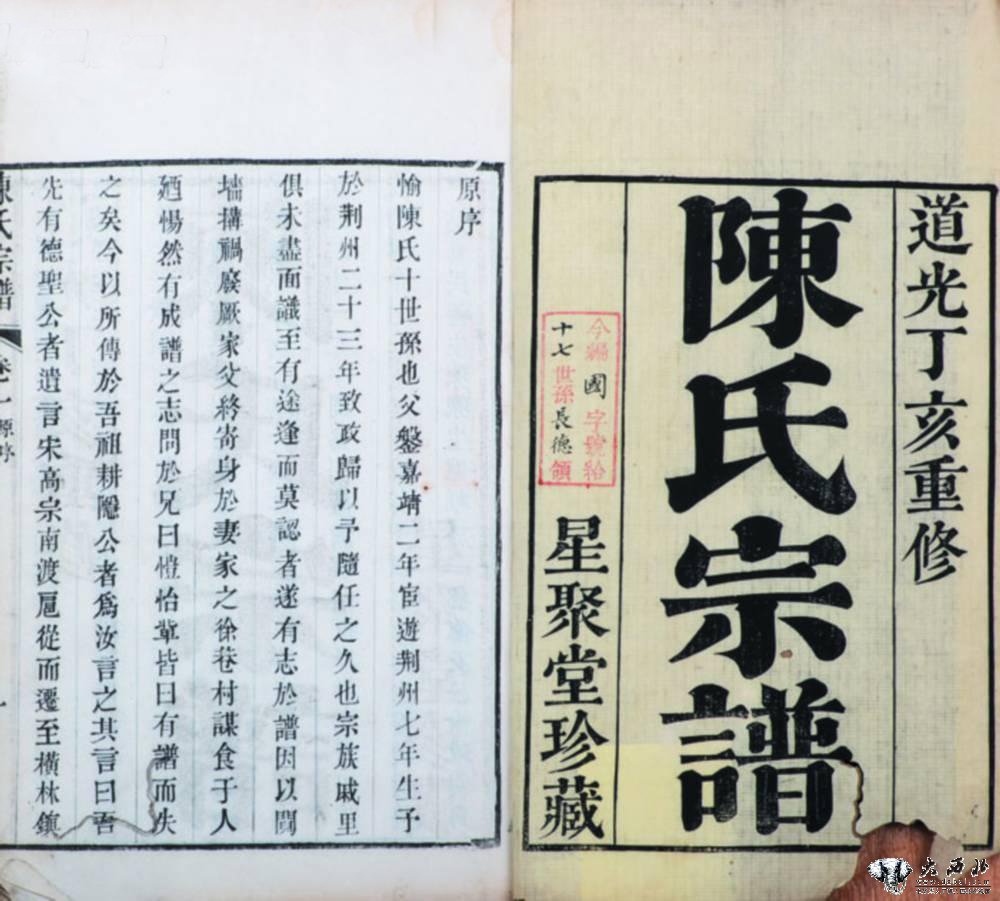 道光丁亥重修
陳氏宗譜
今編國字號給
十七世孫長德領
星聚堂珍藏
原序
愉陳氏十世孫也父鏊嘉靖二年宦遊荆州七年生予
於荆州二十三年致政歸以予隨任之久也宗族戚里
俱未盡面識至有途逢而莫認者遂有志於譜因以鬩
墻搆禍廢厥家父終寄身於妻家之徐巷村謀食于人
廼惕然有成譜之志問於兄曰愷怡輩皆曰有譜而失
之矣今以所傳於吾祖耕隱公者爲汝言之其言曰吾
先有德聖公者遺言宋高宗南渡扈從而遷至橫林鎮
陳氏宗譜
卷一
原序
一
大西北